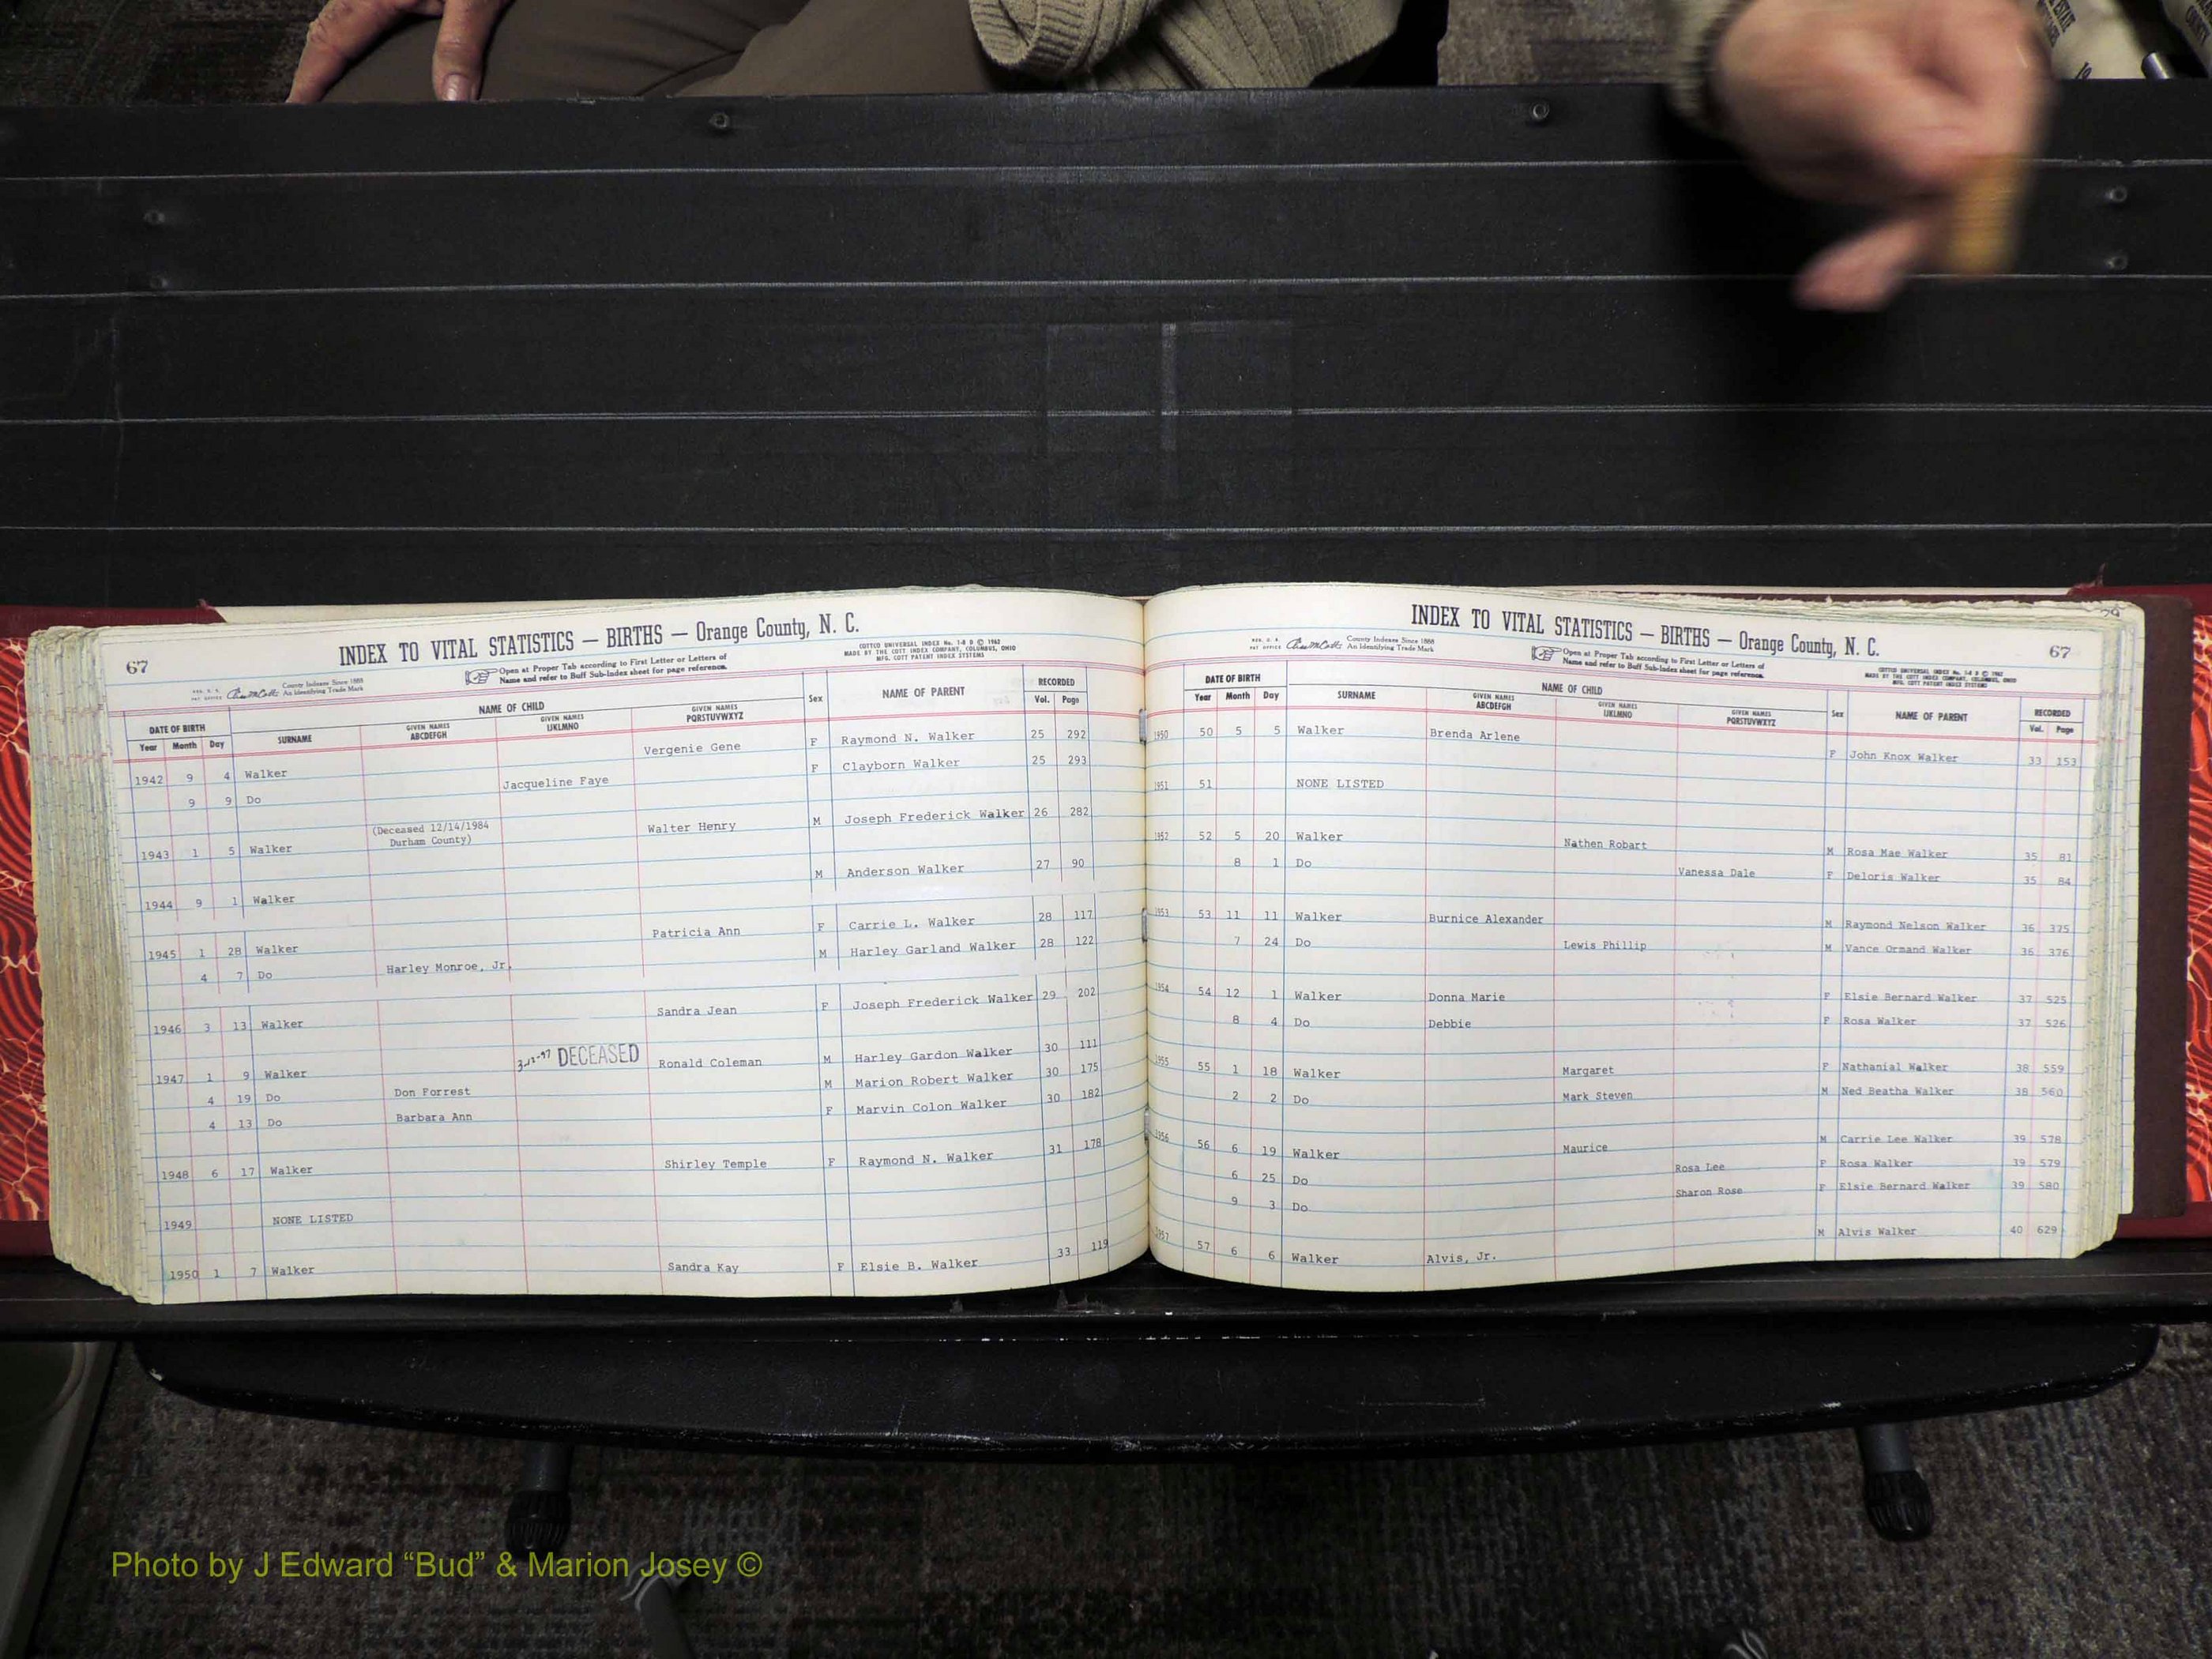 67
INDEX TO VITAL STATISTICS — BIRTHS — Orange County, N. C.
County Indexes Since 1888
An Identifying Trade Mark
Open at Proper Tab according to First Letter or Letters of
Name and refer to Buff Sub-Index sheet for page reference.
COTTCO UNIVERSAL INDEX No. 1-8 D © 1962
MADE BY THE COTT INDEX COMPANY, COLUMBUS, OHIO
MFG. COTT PATENT INDEX SYSTEMS
DATE OF BIRTH NAME OF CHILD Sex NAME OF PARENT RECORDED
Year Month Day SURNAME GIVEN NAMES ABCDEFGH GIVEN NAMES IJKLMNO GIVEN NAMES PQRSTUVWXYZ Vol. Page
1942 9 4 Walker Vergenie Gene F Raymond N. Walker 25 292
9 9 Do Jacqueline Faye F Clayborn Walker 25 293
1943 1 5 Walker (Deceased 12/14/1984 Durham County) Walter Henry M Joseph Frederick Walker 26 282
1944 9 1 Walker M Anderson Walker 27 90
1945 1 28 Walker Patricia Ann F Carrie L. Walker 28 117
4 7 Do Harley Monroe, Jr. M Harley Garland Walker 28 122
1946 3 13 Walker Sandra Jean F Joseph Frederick Walker 29 202
1947 1 9 Walker DECEASED Ronald Coleman M Harley Gardon Walker 30 111
4 19 Do Don Forrest M Marion Robert Walker 30 175
4 13 Do Barbara Ann F Marvin Colon Walker 30 182
1948 6 17 Walker Shirley Temple F Raymond N. Walker 31 178
1949 NONE LISTED
1950 1 7 Walker Sandra Kay F Elsie B. Walker 33 119
INDEX TO VITAL STATISTICS — BIRTHS — Orange County, N. C.
67
County Indexes Since 1888
An Identifying Trade Mark
Open at Proper Tab according to First Letter or Letters of
Name and refer to Buff Sub-Index sheet for page reference.
COTTCO UNIVERSAL INDEX No. 1-8 D © 1962
MADE BY THE COTT INDEX COMPANY, COLUMBUS, OHIO
MFG. COTT PATENT INDEX SYSTEMS
DATE OF BIRTH NAME OF CHILD Sex NAME OF PARENT RECORDED
Year Month Day SURNAME GIVEN NAMES ABCDEFGH GIVEN NAMES IJKLMNO GIVEN NAMES PQRSTUVWXYZ Vol. Page
1950 50 5 5 Walker Brenda Arlene F John Knox Walker 33 153
1951 51 NONE LISTED
1952 52 5 20 Walker Nathen Robart M Rosa Mae Walker 35 81
8 1 Do Vanessa Dale F Deloris Walker 35 84
1953 53 11 11 Walker Burnice Alexander M Raymond Nelson Walker 36 375
7 24 Do Lewis Phillip M Vance Ormand Walker 36 376
1954 54 12 1 Walker Donna Marie F Elsie Bernard Walker 37 525
8 4 Do Debbie F Rosa Walker 37 526
1955 55 1 18 Walker Margaret F Nathanial Walker 38 559
2 2 Do Mark Steven M Ned Beatha Walker 38 560
1956 56 6 19 Walker Maurice M Carrie Lee Walker 39 578
6 25 Do Rosa Lee F Rosa Walker 39 579
9 3 Do Sharon Rose F Elsie Bernard Walker 39 580
1957 57 6 6 Walker Alvis, Jr. M Alvis Walker 40 629
Photo by J Edward “Bud” & Marion Josey ©